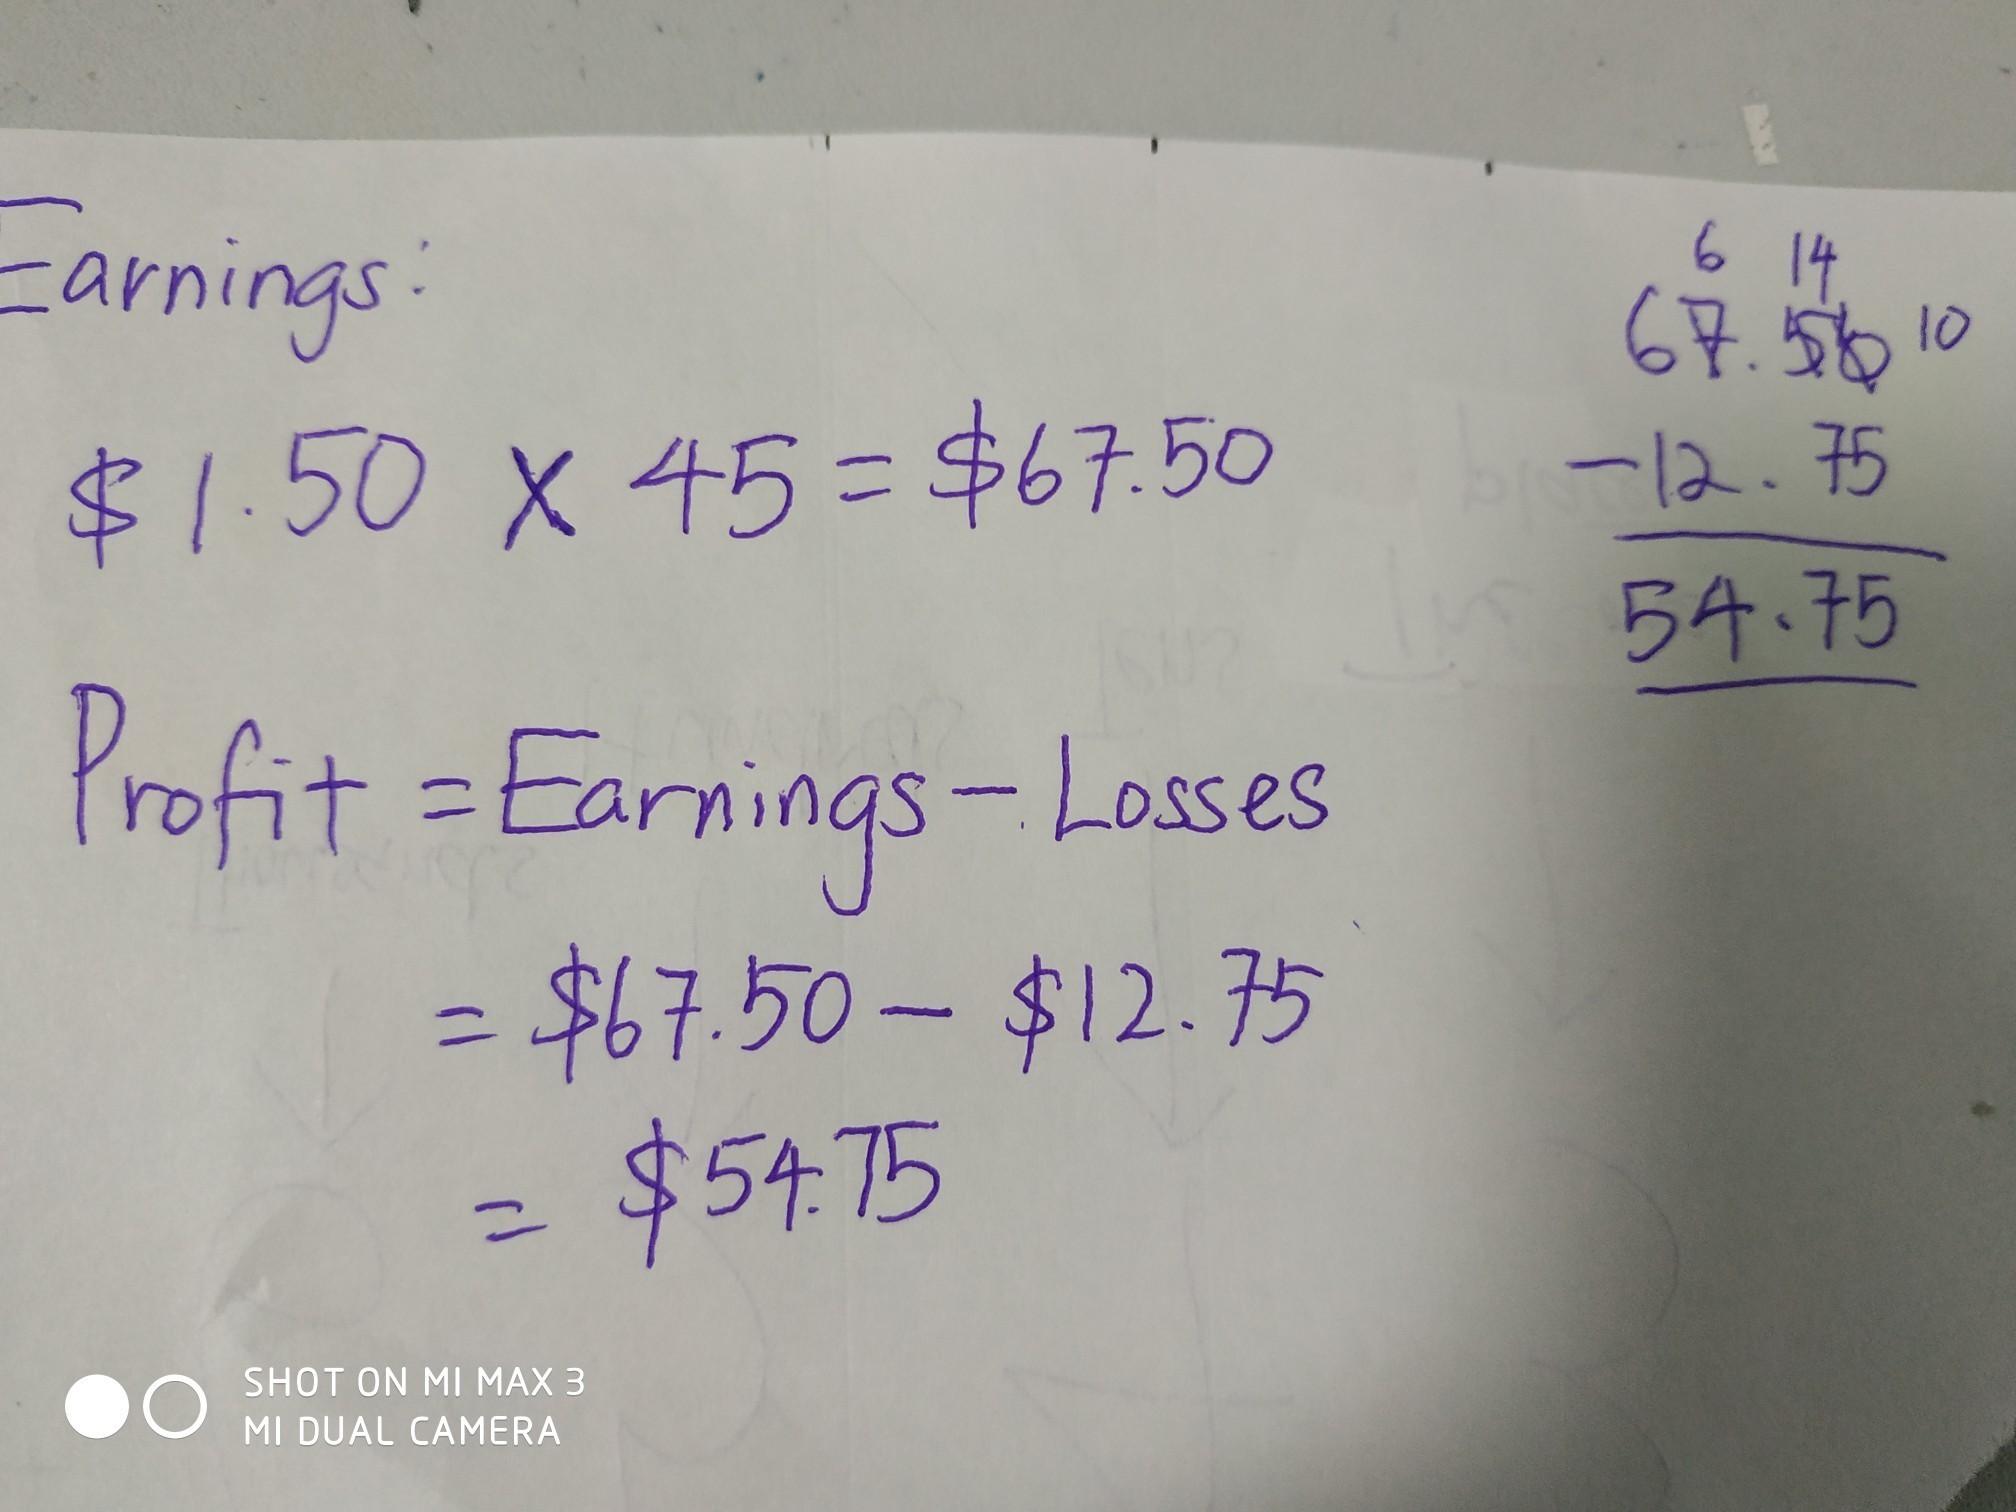 Earnings:
$1.50 x 45 = $67.50
Profit = Earnings - Losses
= $67.50 - $12.75
= $54.75
6 14
67.50 10
-12.75
54.75
SHOT ON MI MAX 3
MI DUAL CAMERA